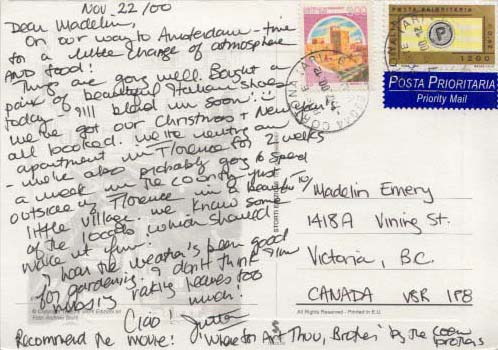 Nov. 22/00
Dear Madelin,
On our way to Amsterdam - time
for a little change of atmosphere
AND food!
Things are going well. Bought a
pair of beautiful Italian shoes
today - I'll blend in soon!
We've got our Christmas & New Year's
all booked. We're renting an
apartment in Florence for 2 weeks
- we're also probably going to spend
a week in the country just
outside of Florence in a beautiful
little village. We know some
of the locals which should
make it fun!
how the weather's been good
for gardening. I don't think I'm
missing raking leaves too
much!
Ciao!
Recommend the movie: "Where for Art Thou, Brother" by the Coen
brothers
POSTA PRIORITARIA
1200
POSTA PRIORITARIA
Priority Mail
Madelin Emery
1418A Vining St.
Victoria, B.C.
CANADA V8R 1P8
All Rights Reserved - Printed in E.U.